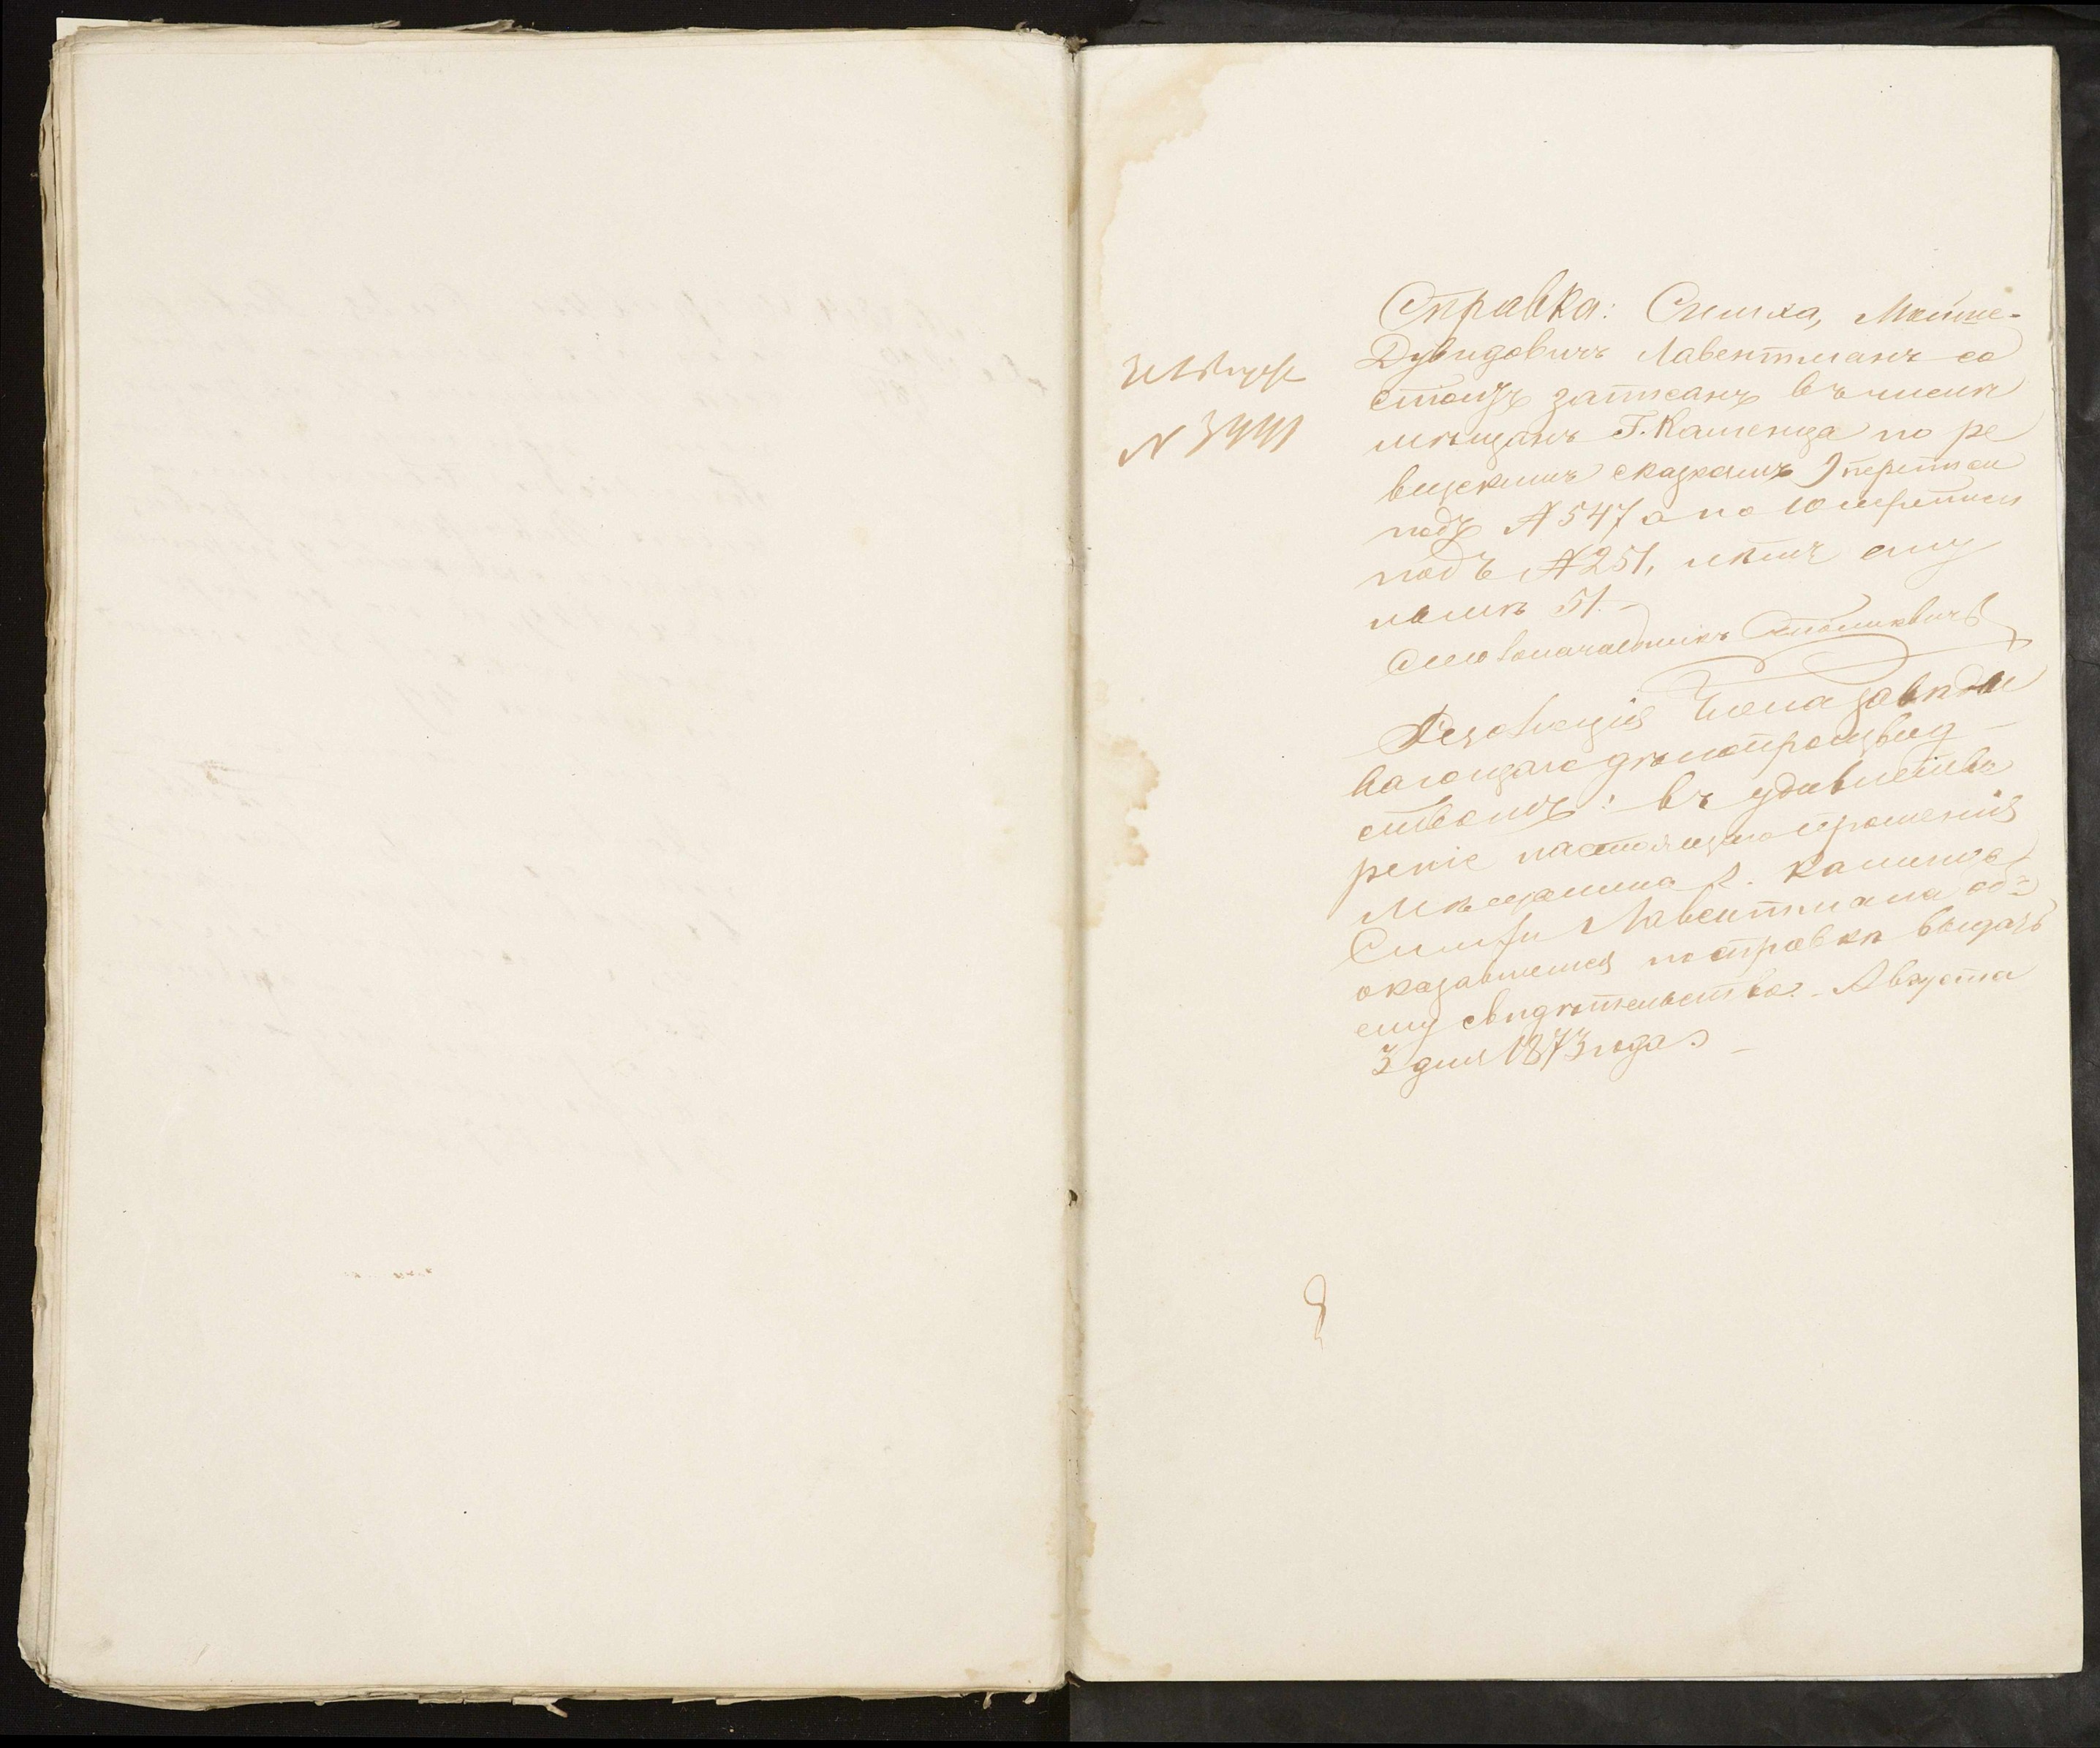 Справка: Симха, Мойше-
Дувидовичъ Лавентманъ со
стоитъ записанъ въ числѣ
мѣщанъ Г. Каменца по ре
визскимъ сказкамъ 9 переписи
подъ № 547 а по 10 переписи
подъ № 251, лѣтъ ему
нынѣ 51.-
Столоначальникъ
3 Августа
N 3441
Резолюція Члена завѣды
вающаго дѣлопроизвод-
ствомъ: въ удовлетво
реніе настоящаго прошенія
мѣщанина г. Каменца
Симхи Лавентмана об=
оказавшемся по справкѣ выдать
ему свидѣтельство.- Августа
3 дня 1873 года. -